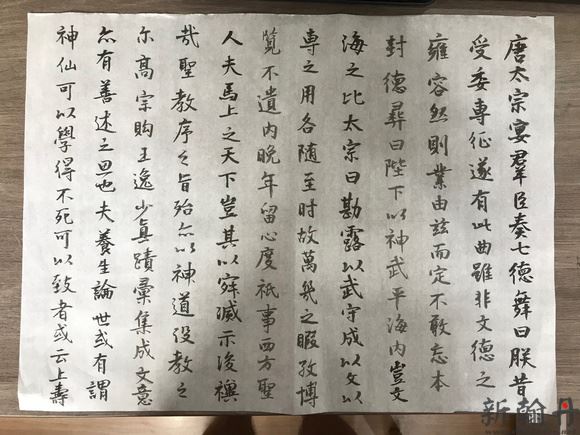 唐太宗宴羣臣奏七德舞曰朕昔
受委專征遂有此曲雖非文德之
雍容然則業由兹而定不敢忘本
封德彝曰陛下以神武平海内豈文
海之比太宗曰勘露以武守成以文以
專之用各随至时故萬幾之暇孜博
覧不遺内晚年留心度祇事西方聖
人夫馬上之天下豈其以寂滅示後禳
哉聖教序之旨殆亦以神道役教之
尔高宗购王逸少真蹟彙集成文意
亦有善述之思也夫養生論世或有謂
神仙可以學得不死可以致者或云上壽
新翰丹